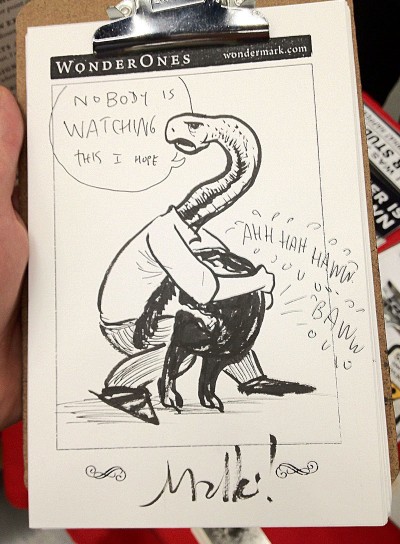 WONDERONES
wondermark.com
NOBODY IS
WATCHING
THIS I HOPE
AHH HAH HAWW
BAWW
Malki!